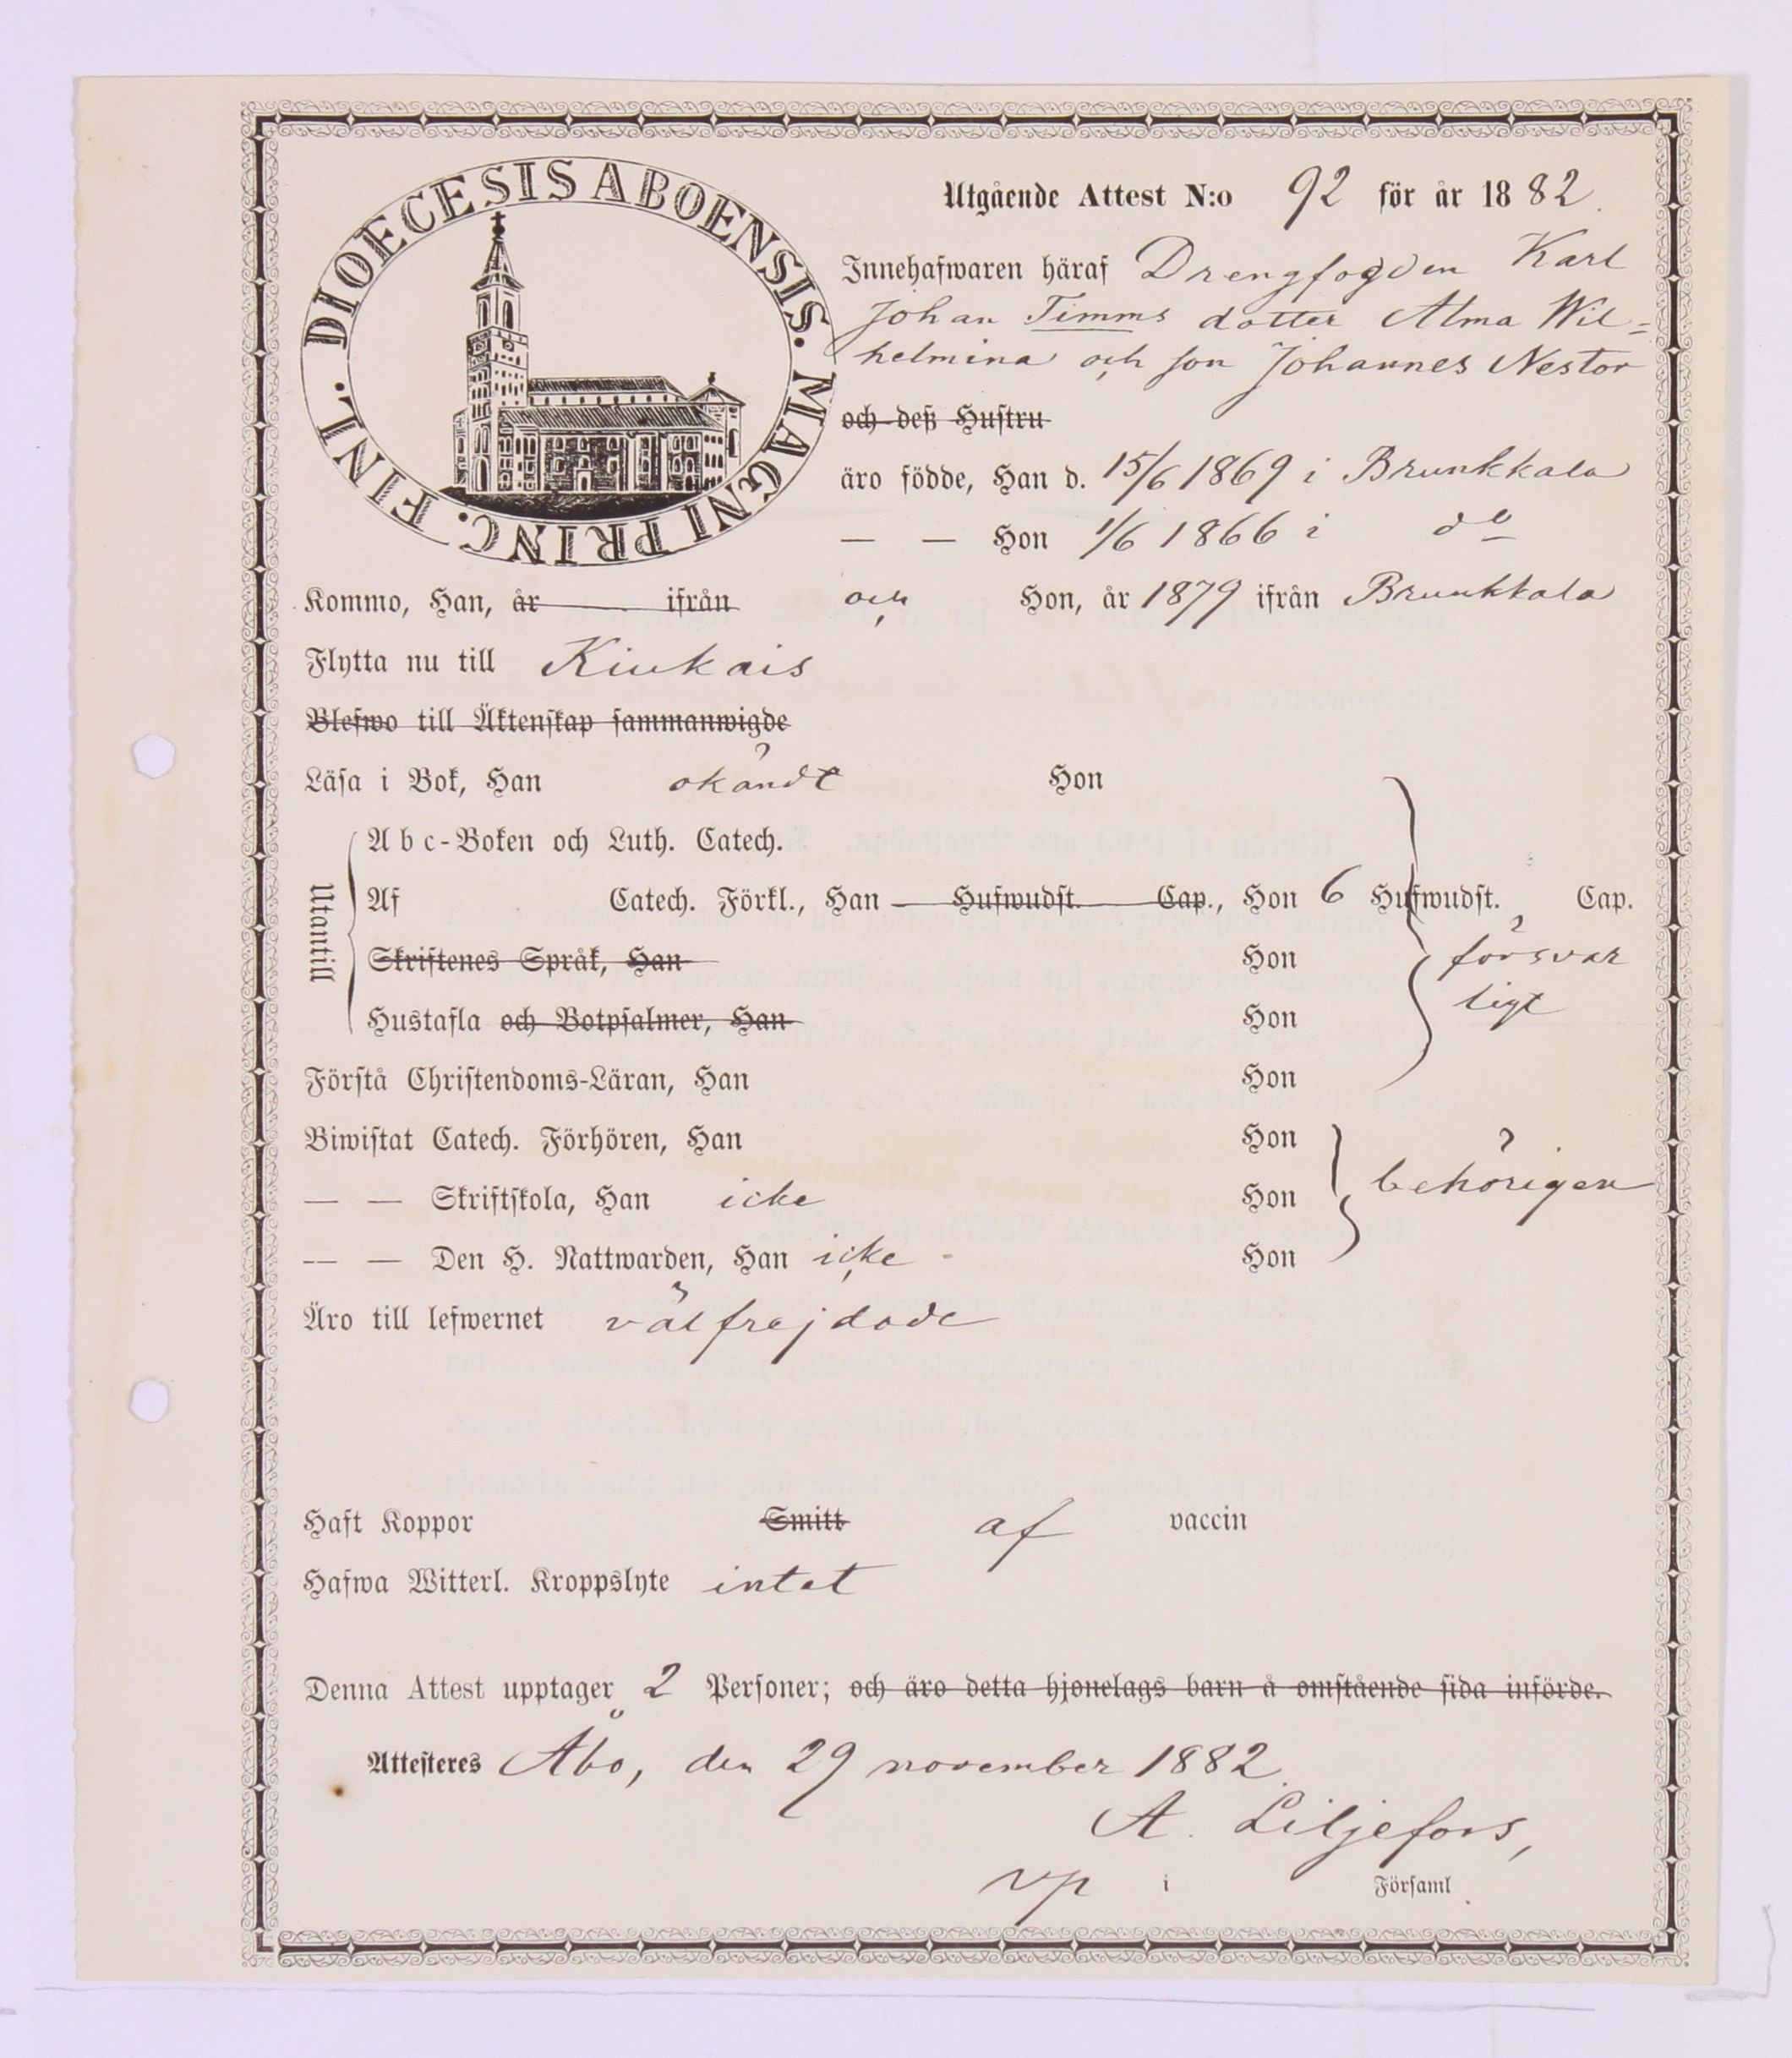 DIOECESIS ABOENSIS. MAGNI PRINC. FINL.
Utgående Attest N:o 92 för år 1882.
Innehafwaren häraf Drengfogden Karl
Johan Timms dotter Alma Wil=
helmina och son Johannes Nestor
och deß Hustru
äro födde, Han d. 15/6 1869 i Brunkkala
— — Hon 1/6 1866 i do
Kommo, Han, år ifrån och Hon, år 1879 ifrån Brunkkala
Flytta nu till Kiukais
Blefwo till Äktenskap sammanwigde
Läsa i Bok, Han okändt Hon
Utantill
Abc-Boken och Luth. Catech.
Af Catech. Förkl., Han — Hufwudst. Cap., Hon 6 Hufwudst. Cap.
Skriftenes Språk, Han Hon försvar
Hustafla och Botpsalmer, Han Hon ligt
Förstå Christendoms-Läran, Han Hon
Biwistat Catech. Förhören, Han Hon
— — Skriftskola, Han icke Hon behörigen
— — Den H. Nattwarden, Han icke Hon
Äro till lefwernet välfrejdade
Haft Koppor Smitt af vaccin
Hafwa Witterl. Kroppslyte intet
Denna Attest upptager 2 Personer; och äro detta hjonelags barn å omstående sida införde.
Attesteres Åbo, den 29 november 1882.
A. Liljefors,
vp i Församl.